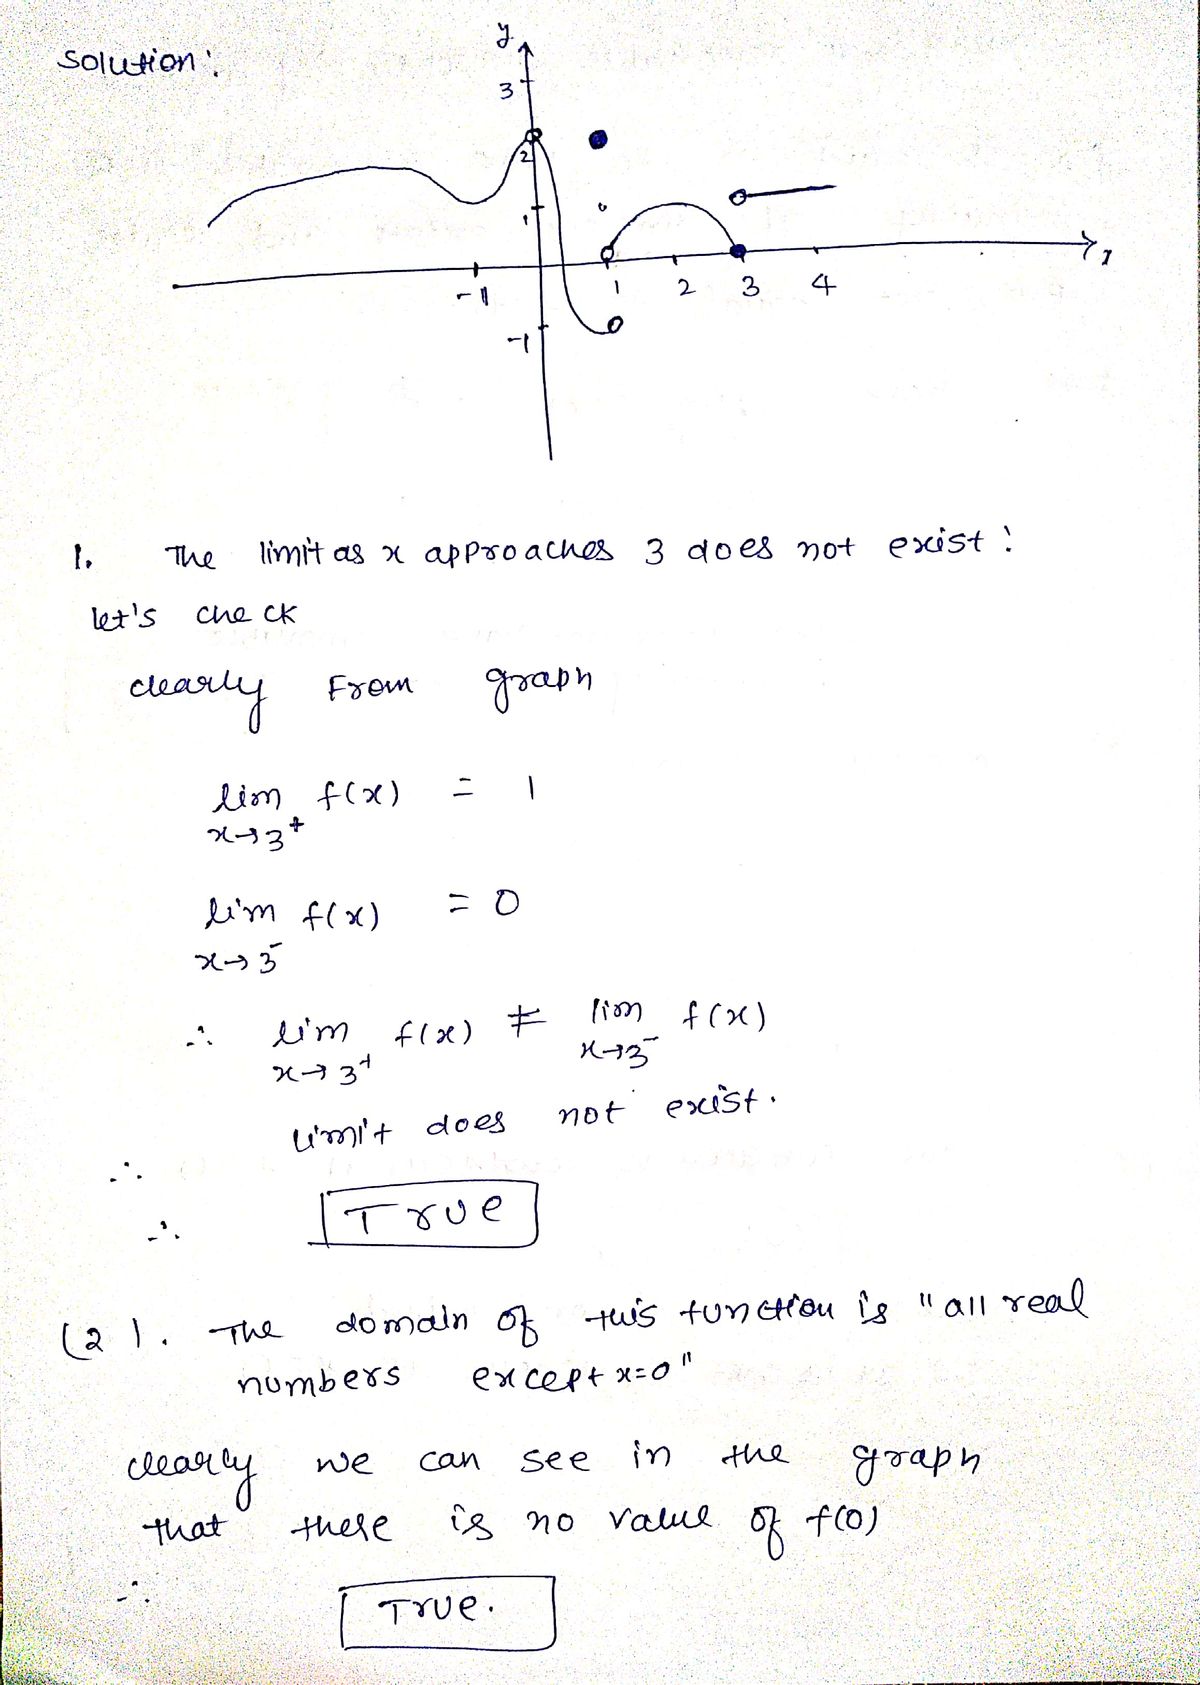 Solution:
y
3
2
1
-1
1
2
3
4
x
-1
1. The limit as x approaches 3 does not exist:
let's check
clearly From graph
lim f(x) = 1
x→3⁺
lim f(x) = 0
x→3⁻
∴ lim f(x) ≠ lim f(x)
x→3⁺ x→3⁻
∴ limit does not exist.
∴ True
(2). The domain of this function is "all real
numbers except x=0"
clearly we can see in the graph
that there is no value of f(0)
∴ True.